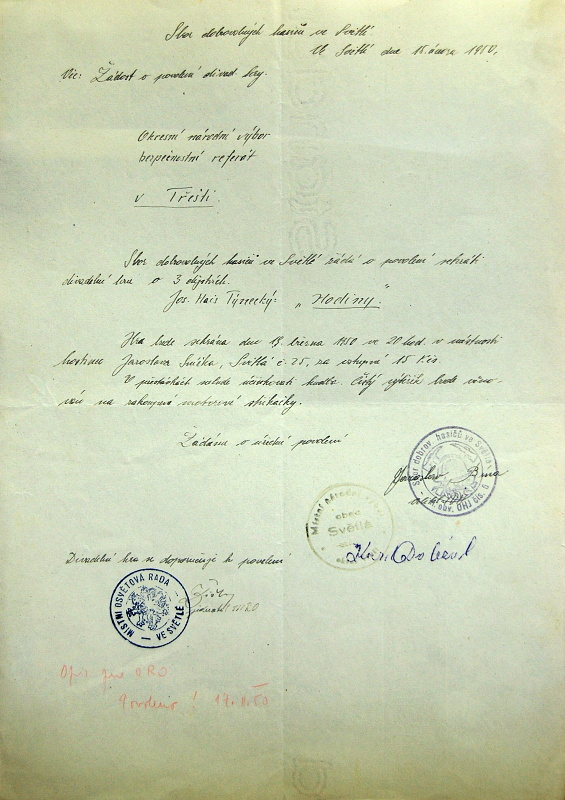 Sbor dobrovolných hasičů ve Světlé
Ve Světlé dne 15. února 1950.
Věc: Žádost o povolení divad. hry.
Okresní národní výbor
bezpečnostní referát
v Třešti.
Sbor dobrovolných hasičů ve Světlé žádá o povolení sehráti
divadelní hru o 3 dějstvích.
Jos. Hais Týnecký: „Hodiny."
Hra bude sehrána dne 19. března 1950 ve 20 hod. v místnosti
hostince Jaroslava, Světlá č. 25, za vstupné 15 Kčs.
V přestávkách nebude účinkovati hudba. Čistý výtěžek bude věno-
ván na zakoupení motorové stříkačky.
Žádáme o úřední povolení
Sbor dobrov. hasičů ve Světlé
Jaroslav
Místní národní výbor
obec
Světlá
Karel
Divadelní hra se doporučuje k povolení
MÍSTNÍ OSVĚTOVÁ RADA
VE SVĚTLÉ
Opis pro ORO
Povoleno! 17.II.50